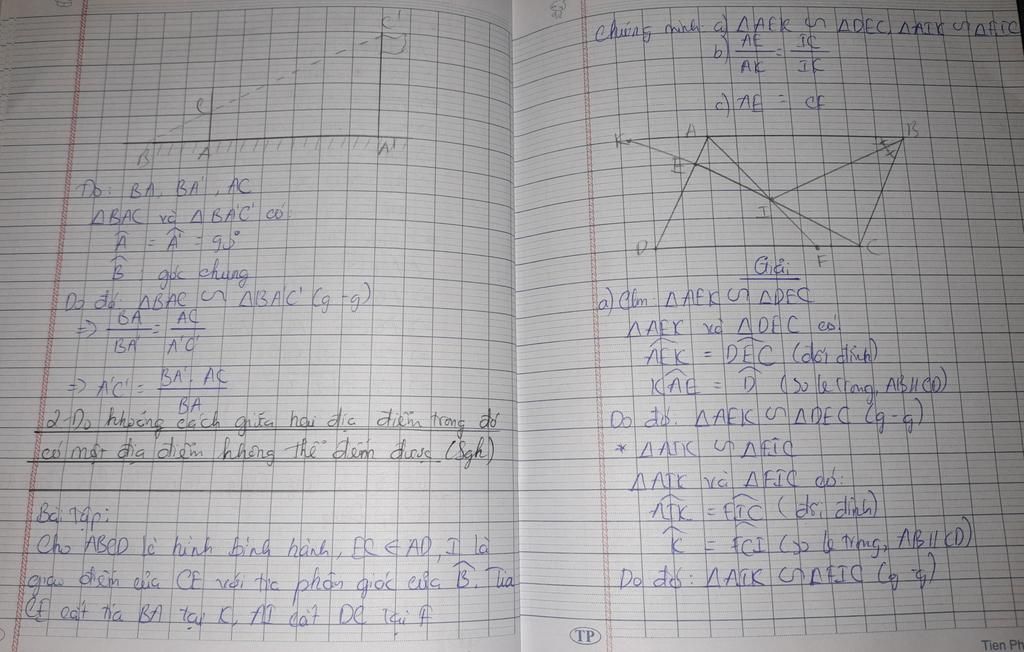 C'
C
B A A'
Đo: BA, BA', AC
ΔBAC và ΔBA'C' có
Â = Â' = 90°
B̂ góc chung
Do đó: ΔBAC ∽ ΔBAC' (g-g)
=> BA/BA' = AC/A'C'
=> A'C' = BA'.AC/BA
2-Đo khoảng cách giữa hai địa điểm trong đó
có một địa điểm không thể đếm được (Sgk)
Bài tập:
Cho ABCD là hình bình hành, EC ∈ AD, I là
giao điểm của CE với tia phân giác của B̂. Tia
CE cắt tia BA tại K, AI cắt DC tại F
Chứng minh: a) ΔAEK ∽ ΔDEC, ΔAIK ∽ ΔFIC
b) AE/AK = IC/IK
c) AE = CF
K A B
E
I
D F C
Giải
a) C/m: ΔAEK ∽ ΔDEC
ΔAEK và ΔDEC có
AEK = DEC (đối đỉnh)
KAE = D̂ (so le trong, AB//CD)
Do đó: ΔAEK ∽ ΔDEC (g-g)
* ΔAIK ∽ ΔFIC
ΔAIK và ΔFIC có:
AIK = FIC (đối đỉnh)
K̂ = FCI (so le trong, AB//CD)
Do đó: ΔAIK ∽ ΔFIC (g-g)
TP
Tien Ph